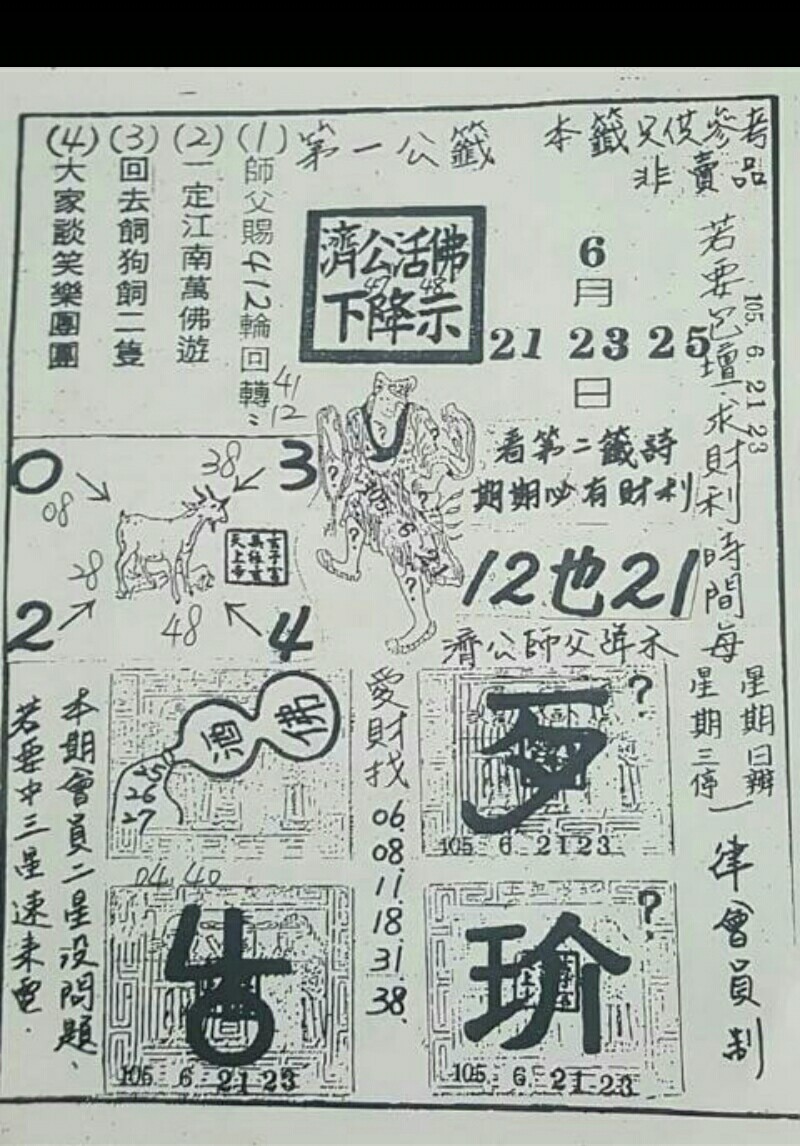 本籤只供參考
非賣品
第一公籤
(1)師父賜412輪回轉
(2)一定江南萬佛遊
(3)回去飼狗飼二隻
(4)大家談笑樂團團
41
12
濟公活佛
47 48
下降示
6
月
21 23 25
日
105. 6. 21 23
若要包壇求財利時間每
星期日辦
星期三停
一律會員制
看第二籤詩
期期必有財利
12也21
濟公師父降示
0
08
38
3
28
2
48
4
佛
酒
25
26
27
愛財找
06
08
11
18
31
38
?
105 6 2123
04.40
105 6 2123
?
玠
105 6 21.23
本期會員二星没問題、
若要中三星速來電.